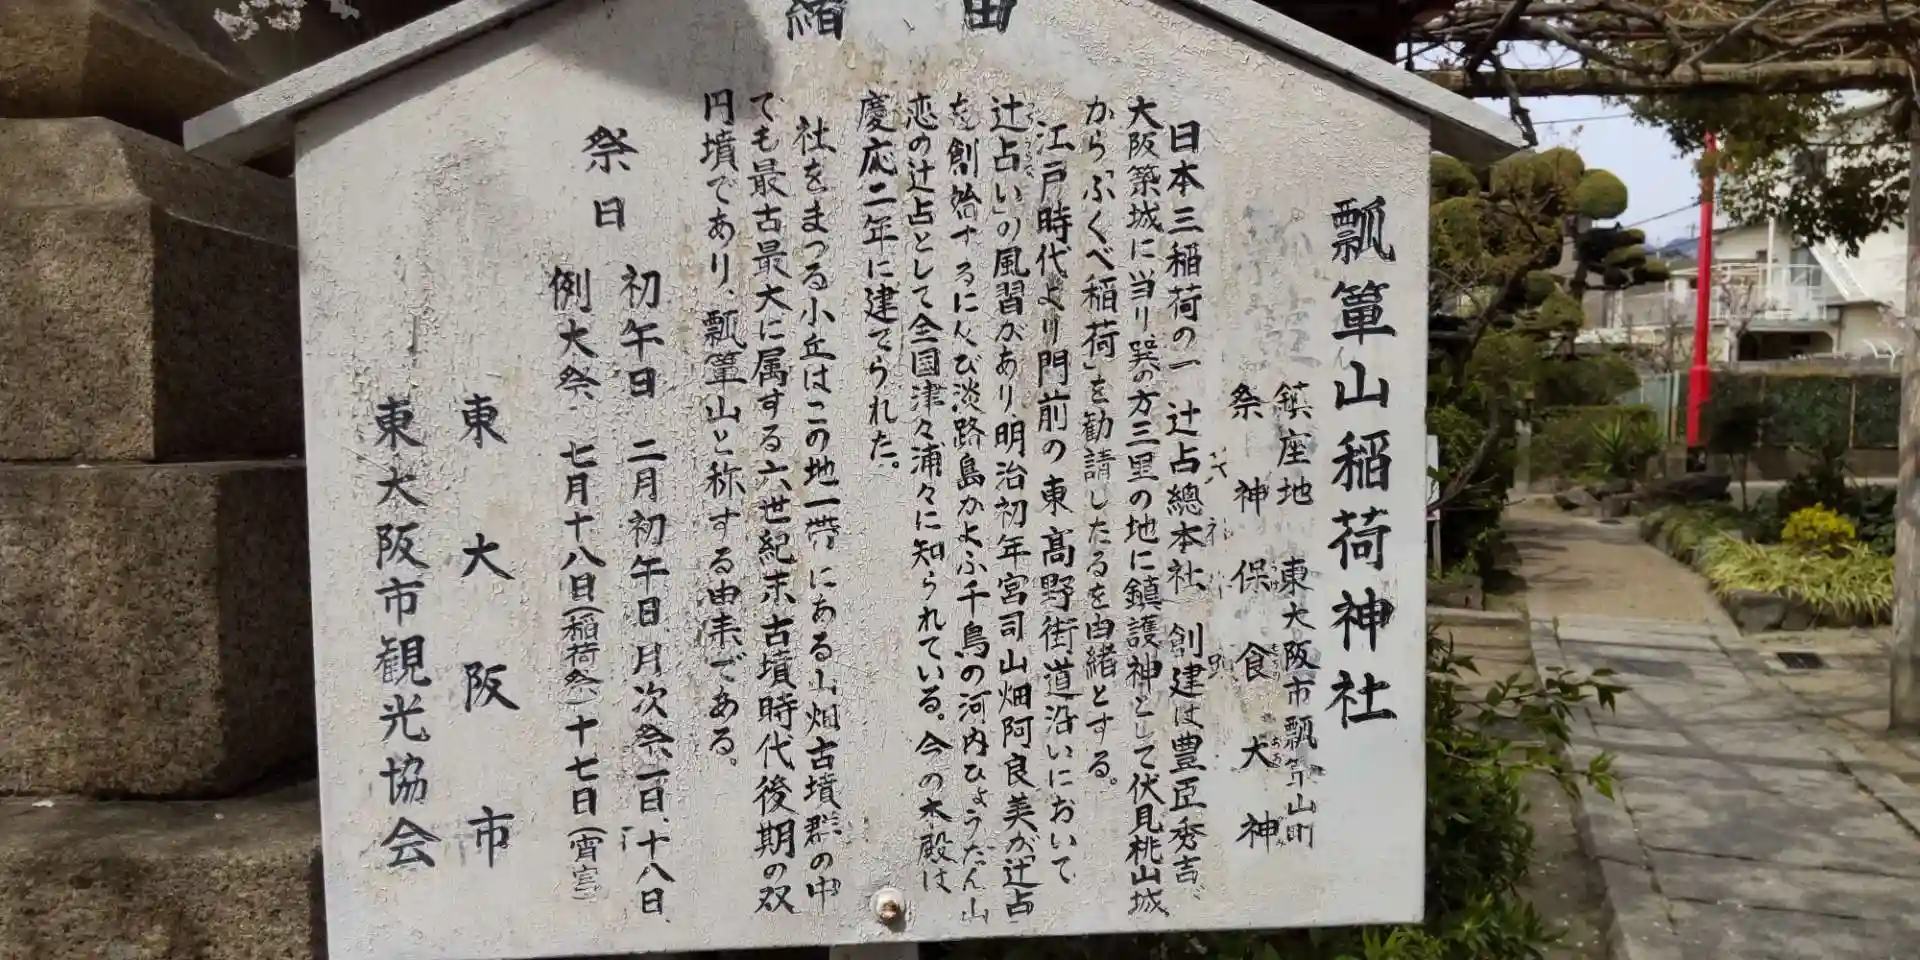 由緒
瓢箪山稲荷神社
鎮座地 東大阪市瓢箪山町
祭神 保食大神
日本三稲荷の一 辻占總本社 創建は豊臣秀吉、
大阪築城に当り、巽の方三里の地に鎮護神として伏見桃山城
から「ふくべ稲荷」を勧請したるを由緒とする。
江戸時代より門前の東高野街道沿いにおいて
辻占い」の風習があり、明治初年宮司山畑阿良美が「辻占」
を創始するに及び淡路島かよふ千鳥の河内ひょうたん山
恋の辻占として全国津々浦々に知られている。今の本殿は
慶応二年に建てられた。
社をまつる小丘はこの地一帯にある山畑古墳群の中
でも最古最大に属する六世紀末古墳時代後期の双
円墳であり、瓢箪山と称する由来である。
祭日
初午日 二月初午日 月次祭一日、十八日、
例大祭 七月十八日(稲荷祭)十七日(宵宮)
東大阪市
東大阪市観光協会